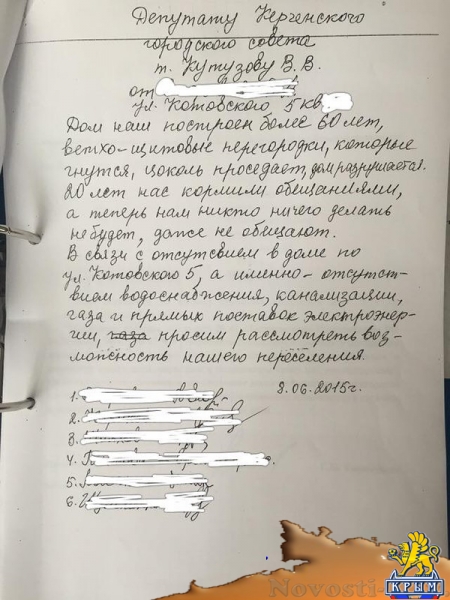 Депутату Керченского
городского совета
т. Кутузову В. В.
от
ул. Котовского 5 кв
Дом наш построен более 60 лет,
ветхо-щитовые перегородки, которые
гнутся, цоколь проседает, дом разрушается.
20 лет нас кормили обещаниями,
а теперь нам никто ничего делать
не будет, даже не обещают.
В связи с отсутсвием в доме по
ул. Котовского 5, а именно - отсутст-
вием водоснабжения, канализации,
газа и прямых поставок электроэнер-
гии, газа просим рассмотреть воз-
можность нашего переселения.
8.06.2015г.
1.
2.
3.
4.
5.
6.
Novosti-
КРЫМ